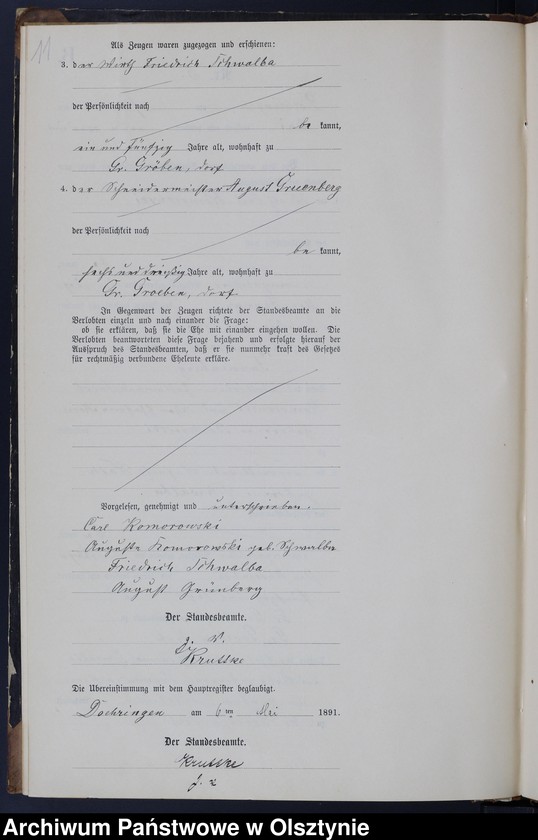 11
Als Zeugen waren zugezogen und erschienen:
3. der Wirth Friedrich Schwalba
der Persönlichkeit nach
be kannt,
ein und fünfzig Jahre alt, wohnhaft zu
Gr. Gröben, Dorf
4. der Schneidermeister August Gruenberg
der Persönlichkeit nach
be kannt,
sechs und dreißig Jahre alt, wohnhaft zu
Gr. Groeben, Dorf
In Gegenwart der Zeugen richtete der Standesbeamte an die
Verlobten einzeln und nach einander die Frage:
ob sie erklären, daß sie die Ehe mit einander eingehen wollen. Die
Verlobten beantworteten diese Frage bejahend und erfolgte hierauf der
Ausspruch des Standesbeamten, daß er sie nunmehr kraft des Gesetzes
für rechtmäßig verbundene Eheleute erkläre.
Vorgelesen, genehmigt und unterschrieben.
Carl Komorowski
Auguste Komorowski geb. Schwalba
Friedrich Schwalba
August Grünberg
Der Standesbeamte.
J. V.
Kruttke
Die Übereinstimmung mit dem Hauptregister beglaubigt.
Doehringen am 6ten Mai 1891.
Der Standesbeamte.
Kruttke
Archiwum Państwowe w Olsztynie